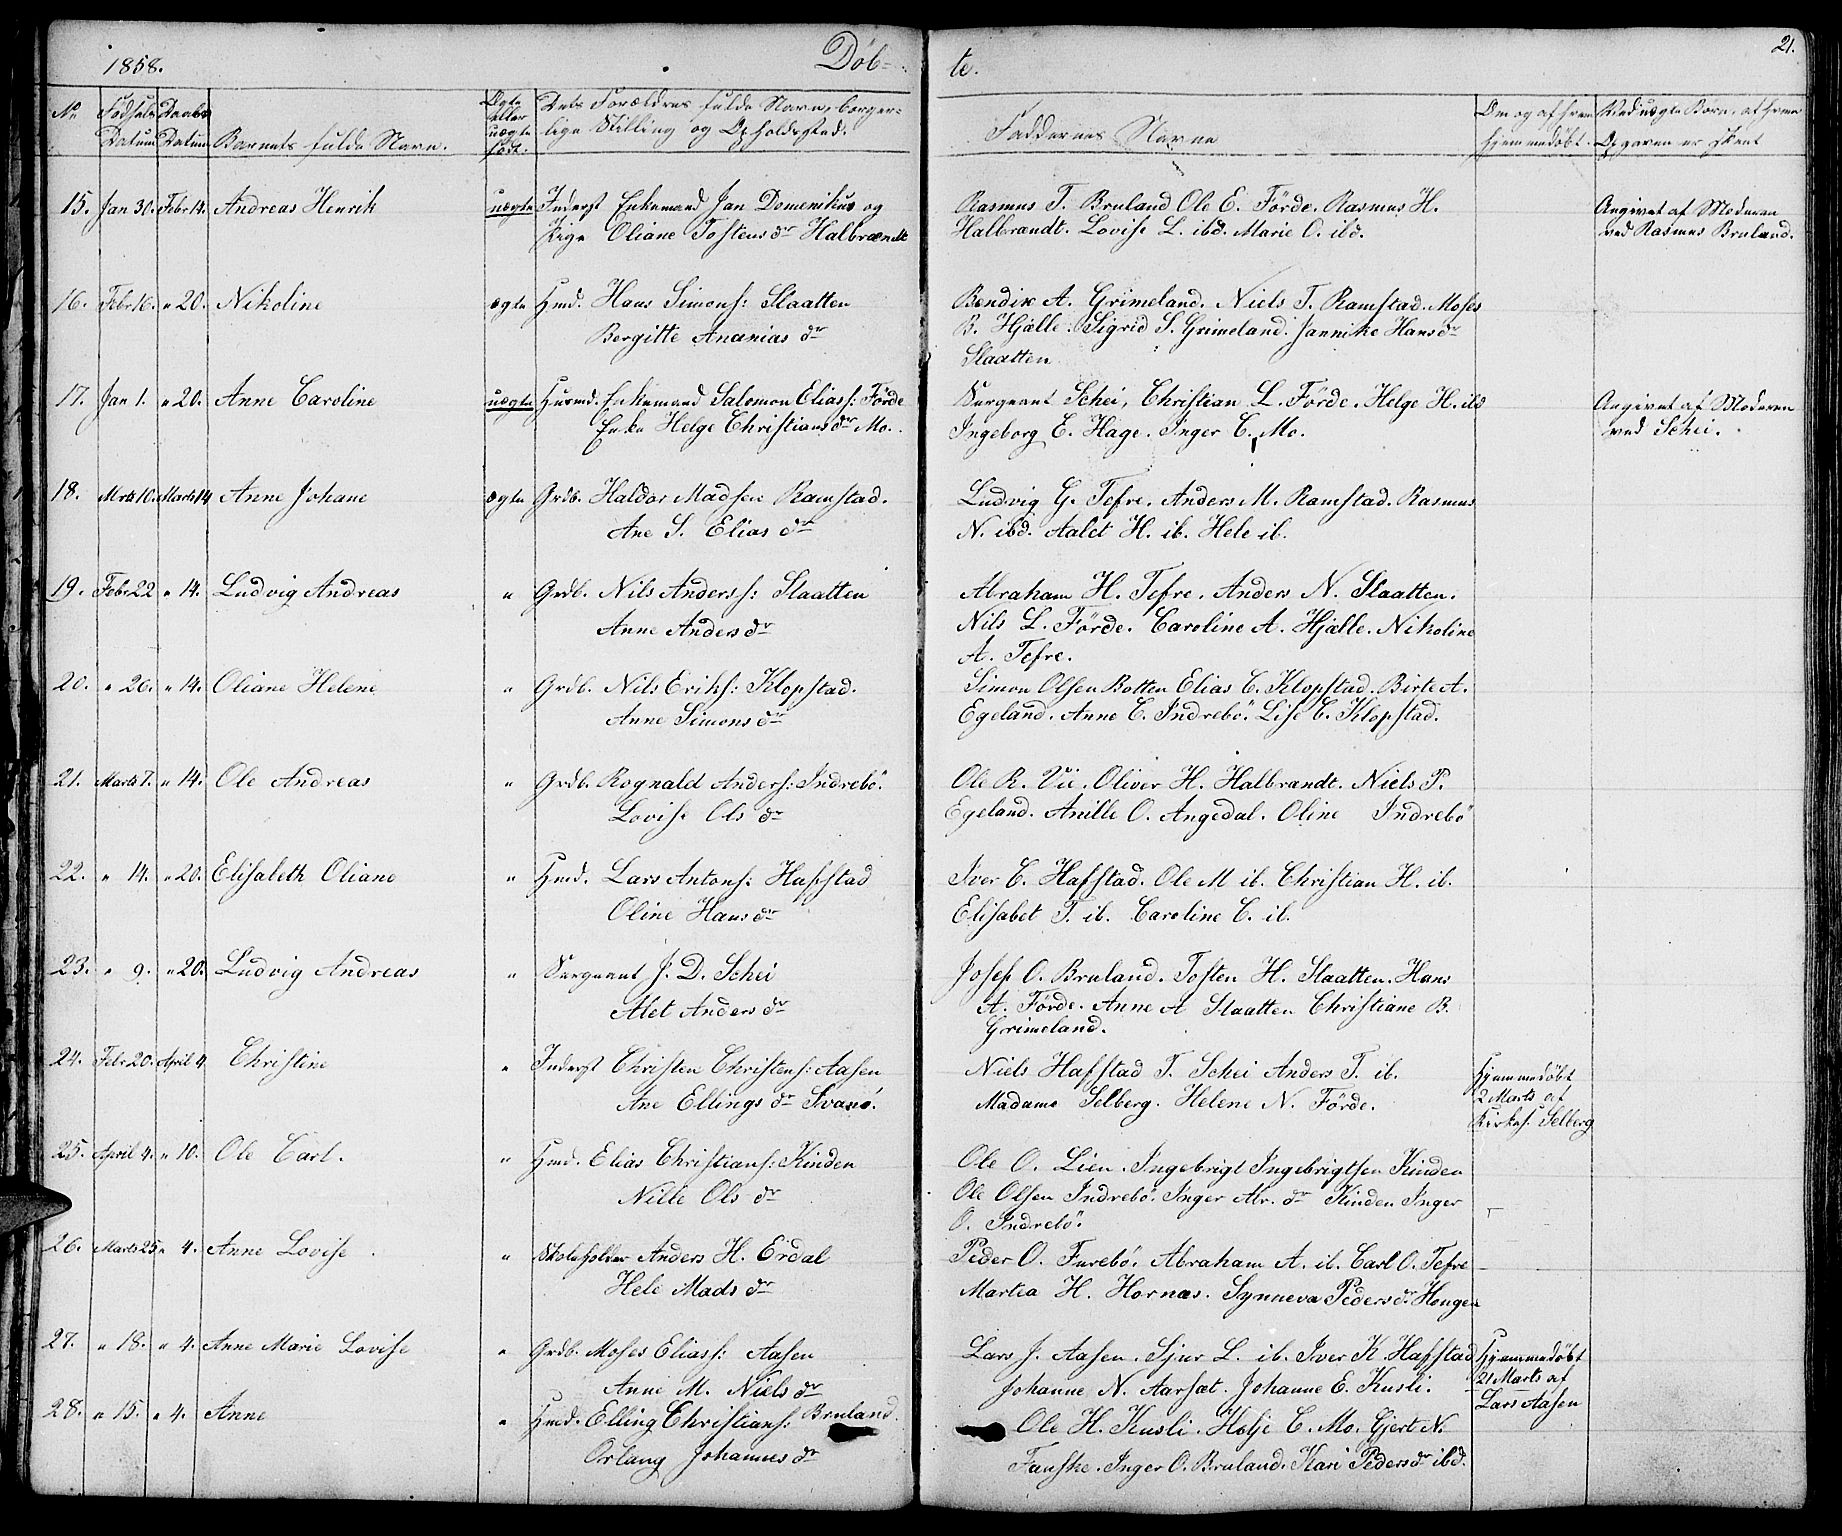 1858. Döb= te. 21.
No Födsels Datum Daabs Datum Barnets fulde Navn. Ægte eller uægte født. Dets Forældres fulde Navn, borgerlige Stilling og Opholdssted. Faddernes Navne Om og af hvem hjemmedöbt. Ved uægte Börn, af hvem Opgaven er skeet
15. Jan 30. Febr 14. Andreas Henrik uægte Inderst Enkemand Jan Domenikus og Rasmus T. Bruland Ole E. Förde. Rasmus H. Angivet af Moderen
Pige Oliane Tostens dr Halbrændt Halbrandt. Lovise L. ibd. Marie O. ibd. ved Rasmus Bruland.
16. Febr 16. " 20. Nikoline ægte Hmd. Hans Simons: Slaatten Bendix A. Grimeland. Niels T. Ramstad. Moses
Bergitte Ananias dr B. Hjälle. Sigrid S. Grimeland. Jannike Hans dr
Slaatten
17. Jan 1. " 20. Anne Caroline uægte Husmd. Enkemand Salomon Elias: Förde Sergeant Schei, Christian L. Förde. Helge H. ibd Angivet af Moderen
Enke Helge Christians dr Mo. Ingeborg E. Hage. Inger C. Mo. ved Schei.
18. Mrts 10. Marts 14 Anne Johane ægte Grdb. Haldor Madsen Ramstad. Ludvig G. Tefre. Anders M. Ramstad. Rasmus
Ane S. Elias dr N. ibd. Aalet H. ib. Hele ib.
19. Febr 22 " 14. Ludvig Andreas " Grdb. Nils Anders: Slaatten Abraham H. Tefre. Anders N. Slaatten.
Anne Anders dr Nils L. Förde. Caroline A. Hjälle. Nikoline
A. Tefre.
20. " 26. " 14. Oliane Helene " Grdb. Nils Eriks: Klopstad. Simon Olsen Botten Elias C. Klopstad. Birte A.
Anne Simons dr Egeland. Anne C. Indrebö. Lise C. Klopstad.
21. Marts 7. " 14. Ole Andreas " Grdb. Rognald Anders: Indrebö. Ole R. Vie. Oliver H. Halbrandt. Niels P.
Lovise Ols dr Egeland. Anille O. Angedal. Oline Indrebö
22. " 14. " 20. Elisabeth Oliane " Hmd. Lars Antons: Hafstad Iver C. Hafstad. Ole M ib. Christian H. ib.
Oline Hans dr Elisabet T. ib. Caroline C. ib.
23. " 9. " 20. Ludvig Andreas " Sergeant J. D. Schei Josef O. Bruland. Tosten H. Slaatten. Hans
Alet Anders dr A. Förde. Anne A Slaatten Christiane B.
Grimeland.
24. Febr 20. April 4 Christine " Inderst Christen Christens: Aasen Niels Hafstad T. Schei Anders T. ib. Hjemmedöbt
Ane Ellings dr Svanö. Madame Selberg. Helene N. Förde. 2 Marts af
Kirkes. Selberg
25. April 4. " 10. Ole Carl. " Hmd. Elias Christians: Kinden Ole O. Lien. Ingebrigt Ingebrigtsen Kinden
Nille Ols dr Ole Olsen Indrebö. Inger Abr. dr Kinden Inger
O. Indrebö.
26. Marts 25 " 4. Anne Lovise " Skoleholder Anders H. Erdal Peder O. Furebö. Abraham A. ib. Carl O. Tefre
Hele Mads dr Martea H. Hornæs. Synneva Peders dr Hougen
27. " 18. " 4. Anne Marie Lovise " Grdb. Moses Elias: Aasen Lars J. Aasen. Sjur L. ib. Iver K. Hafstad Hjemmedöbt
Anne M. Niels dr Johanne N. Aarsæt. Johanne E. Kusli. 21 Marts af
Lars Aasen
28. " 15. " 4. Anne " Hmd. Elling Christians: Bruland. Ole H. Kusli. Holje C. Mo. Gjert N.
Orlaug Johannes dr Fanske. Inger O. Bruland. Kari Peders dr ibd.